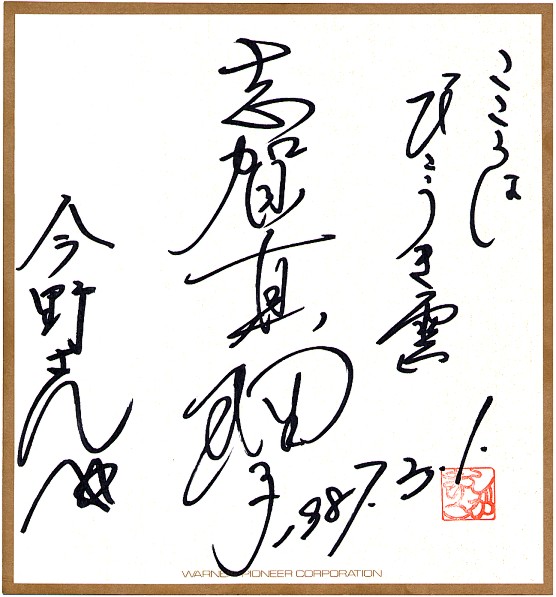 こころは
ひこうき雲
志賀真理子
'87.3.1.
今野さんへ
WARNER-PIONEER CORPORATION